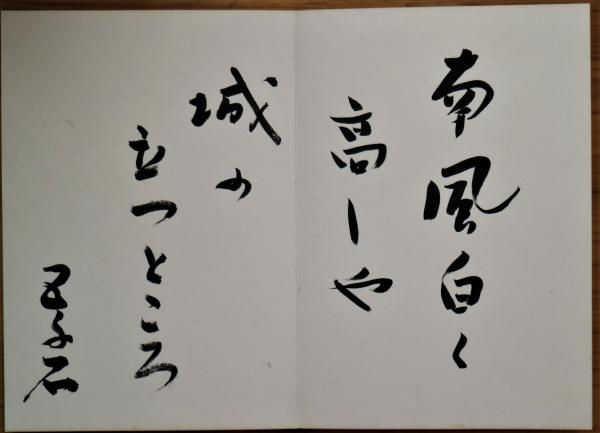 南風白く
高しや
城の
立つところ
五千石